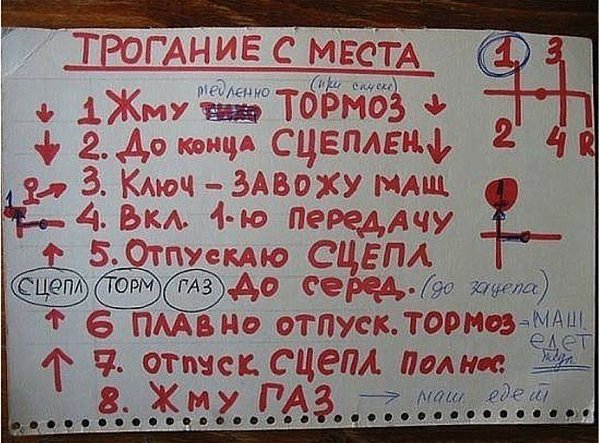 ТРОГАНИЕ С МЕСТА
медленно (при спуске)
1 Жму ТОРМОЗ
2. До конца СЦЕПЛЕН.
3. Ключ – ЗАВОЖУ МАШ
4. Вкл. 1-ю передачу
5. Отпускаю СЦЕПЛ.
СЦЕПЛ ТОРМ ГАЗ До серед. (до зацепа)
6 плавно отпуск. ТОРМОЗ → МАШ. ЕДЕТ
7. отпуск. СЦЕПЛ полнос.
8. Жму ГАЗ → маш. едет
1 3
2 4 R
1
1